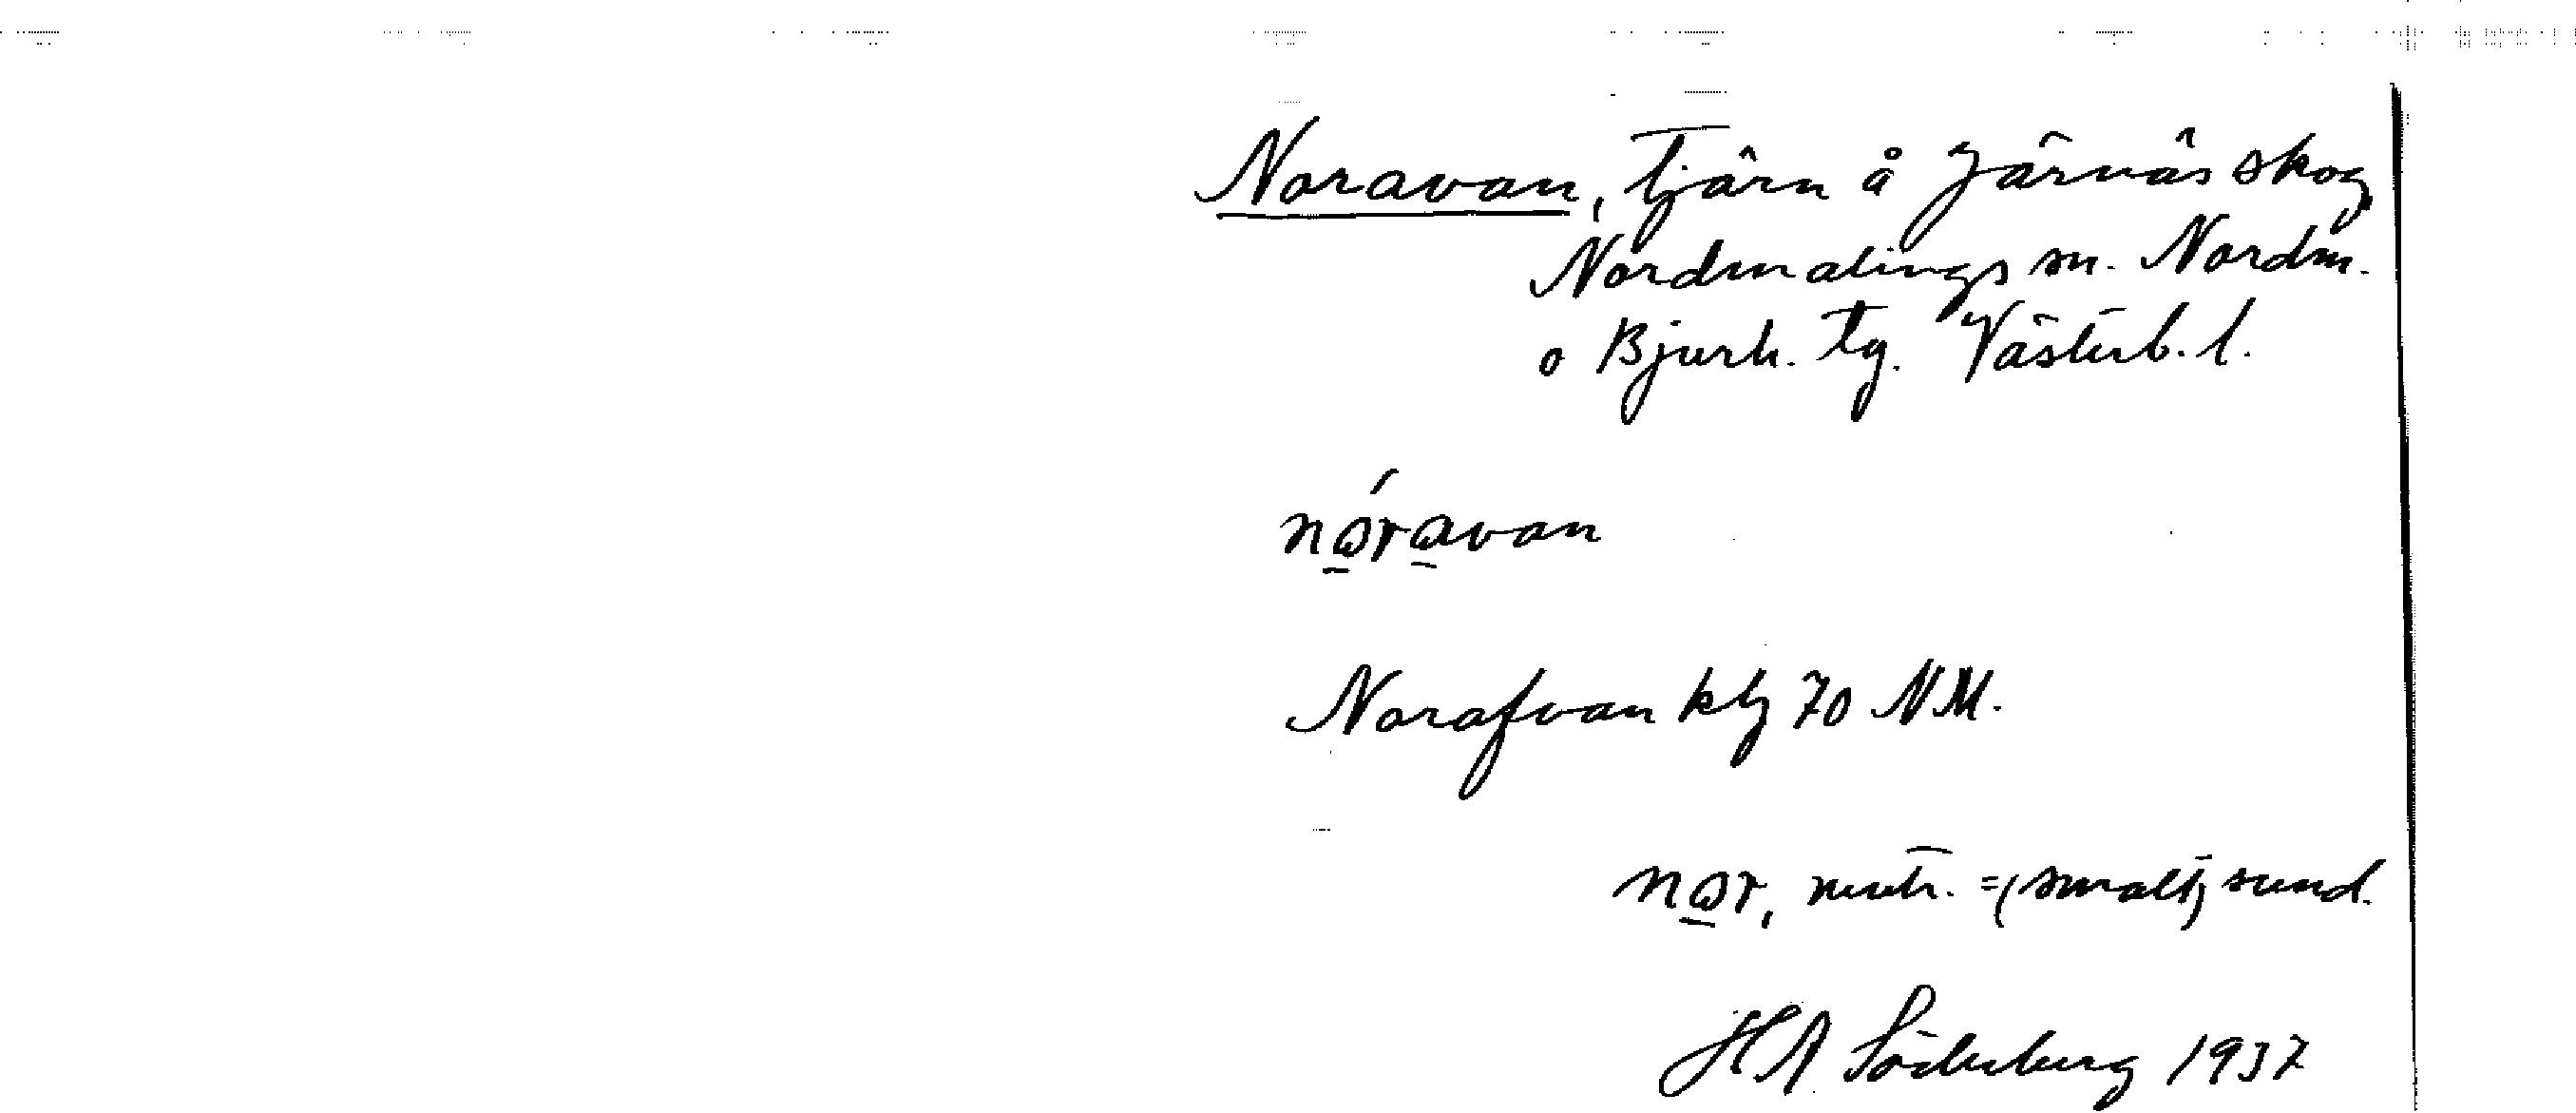 Noravan, Tjärn å Järnäs skog
Nordmalings sn. Nordm.
o Bjurh. tg. Västerb. l.
nóravan
Norafvan ktj 70 NM.
nor, neutr. =(smalt) sund.
HA Söderberg 1937